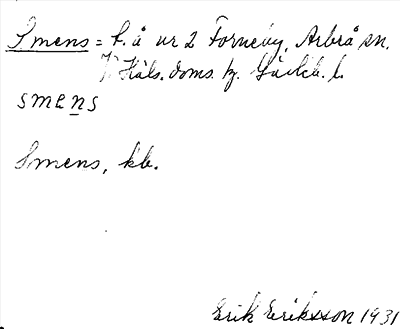 Smens = f. å nr 2 Forneby, Arbrå sn.
V. Häls. doms. hg. Gävleb. l.
smens
Smens, kb.
Erik Eriksson 1931